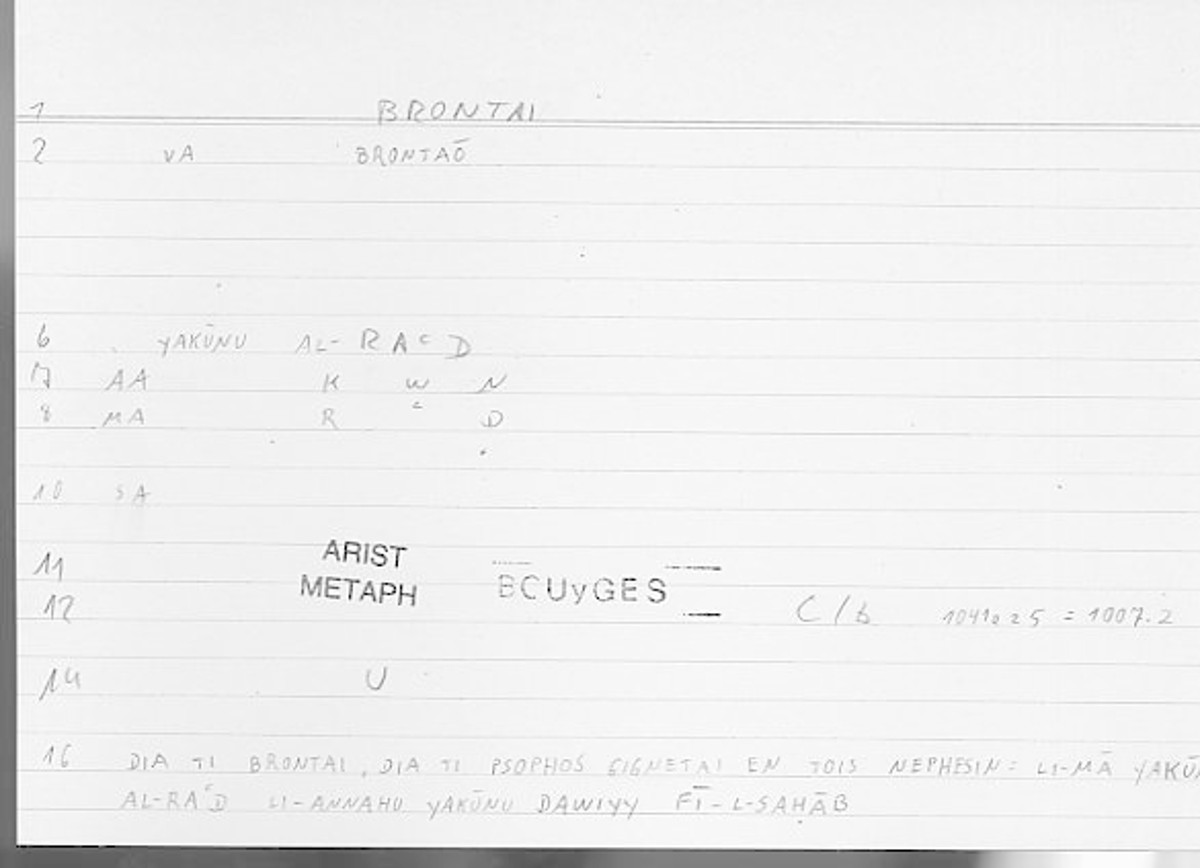 1 BRONTAI
2 vA BRONTAŌ
6 YAKŪNU AL-RAʿD
7 AA K W N
8 MA R ʿ D
10 SA
11 ARIST
12 METAPH BCUyGES C/b 1041a25 = 1007.2
14 U
16 DIA TI BRONTAI, DIA TI PSOPHOS GIGNETAI EN TOIS NEPHESIN: LI-MĀ YAKŪ
AL-RAʿD LI-ANNAHU YAKŪNU DAWIYY FĪ-L-SAḤĀB